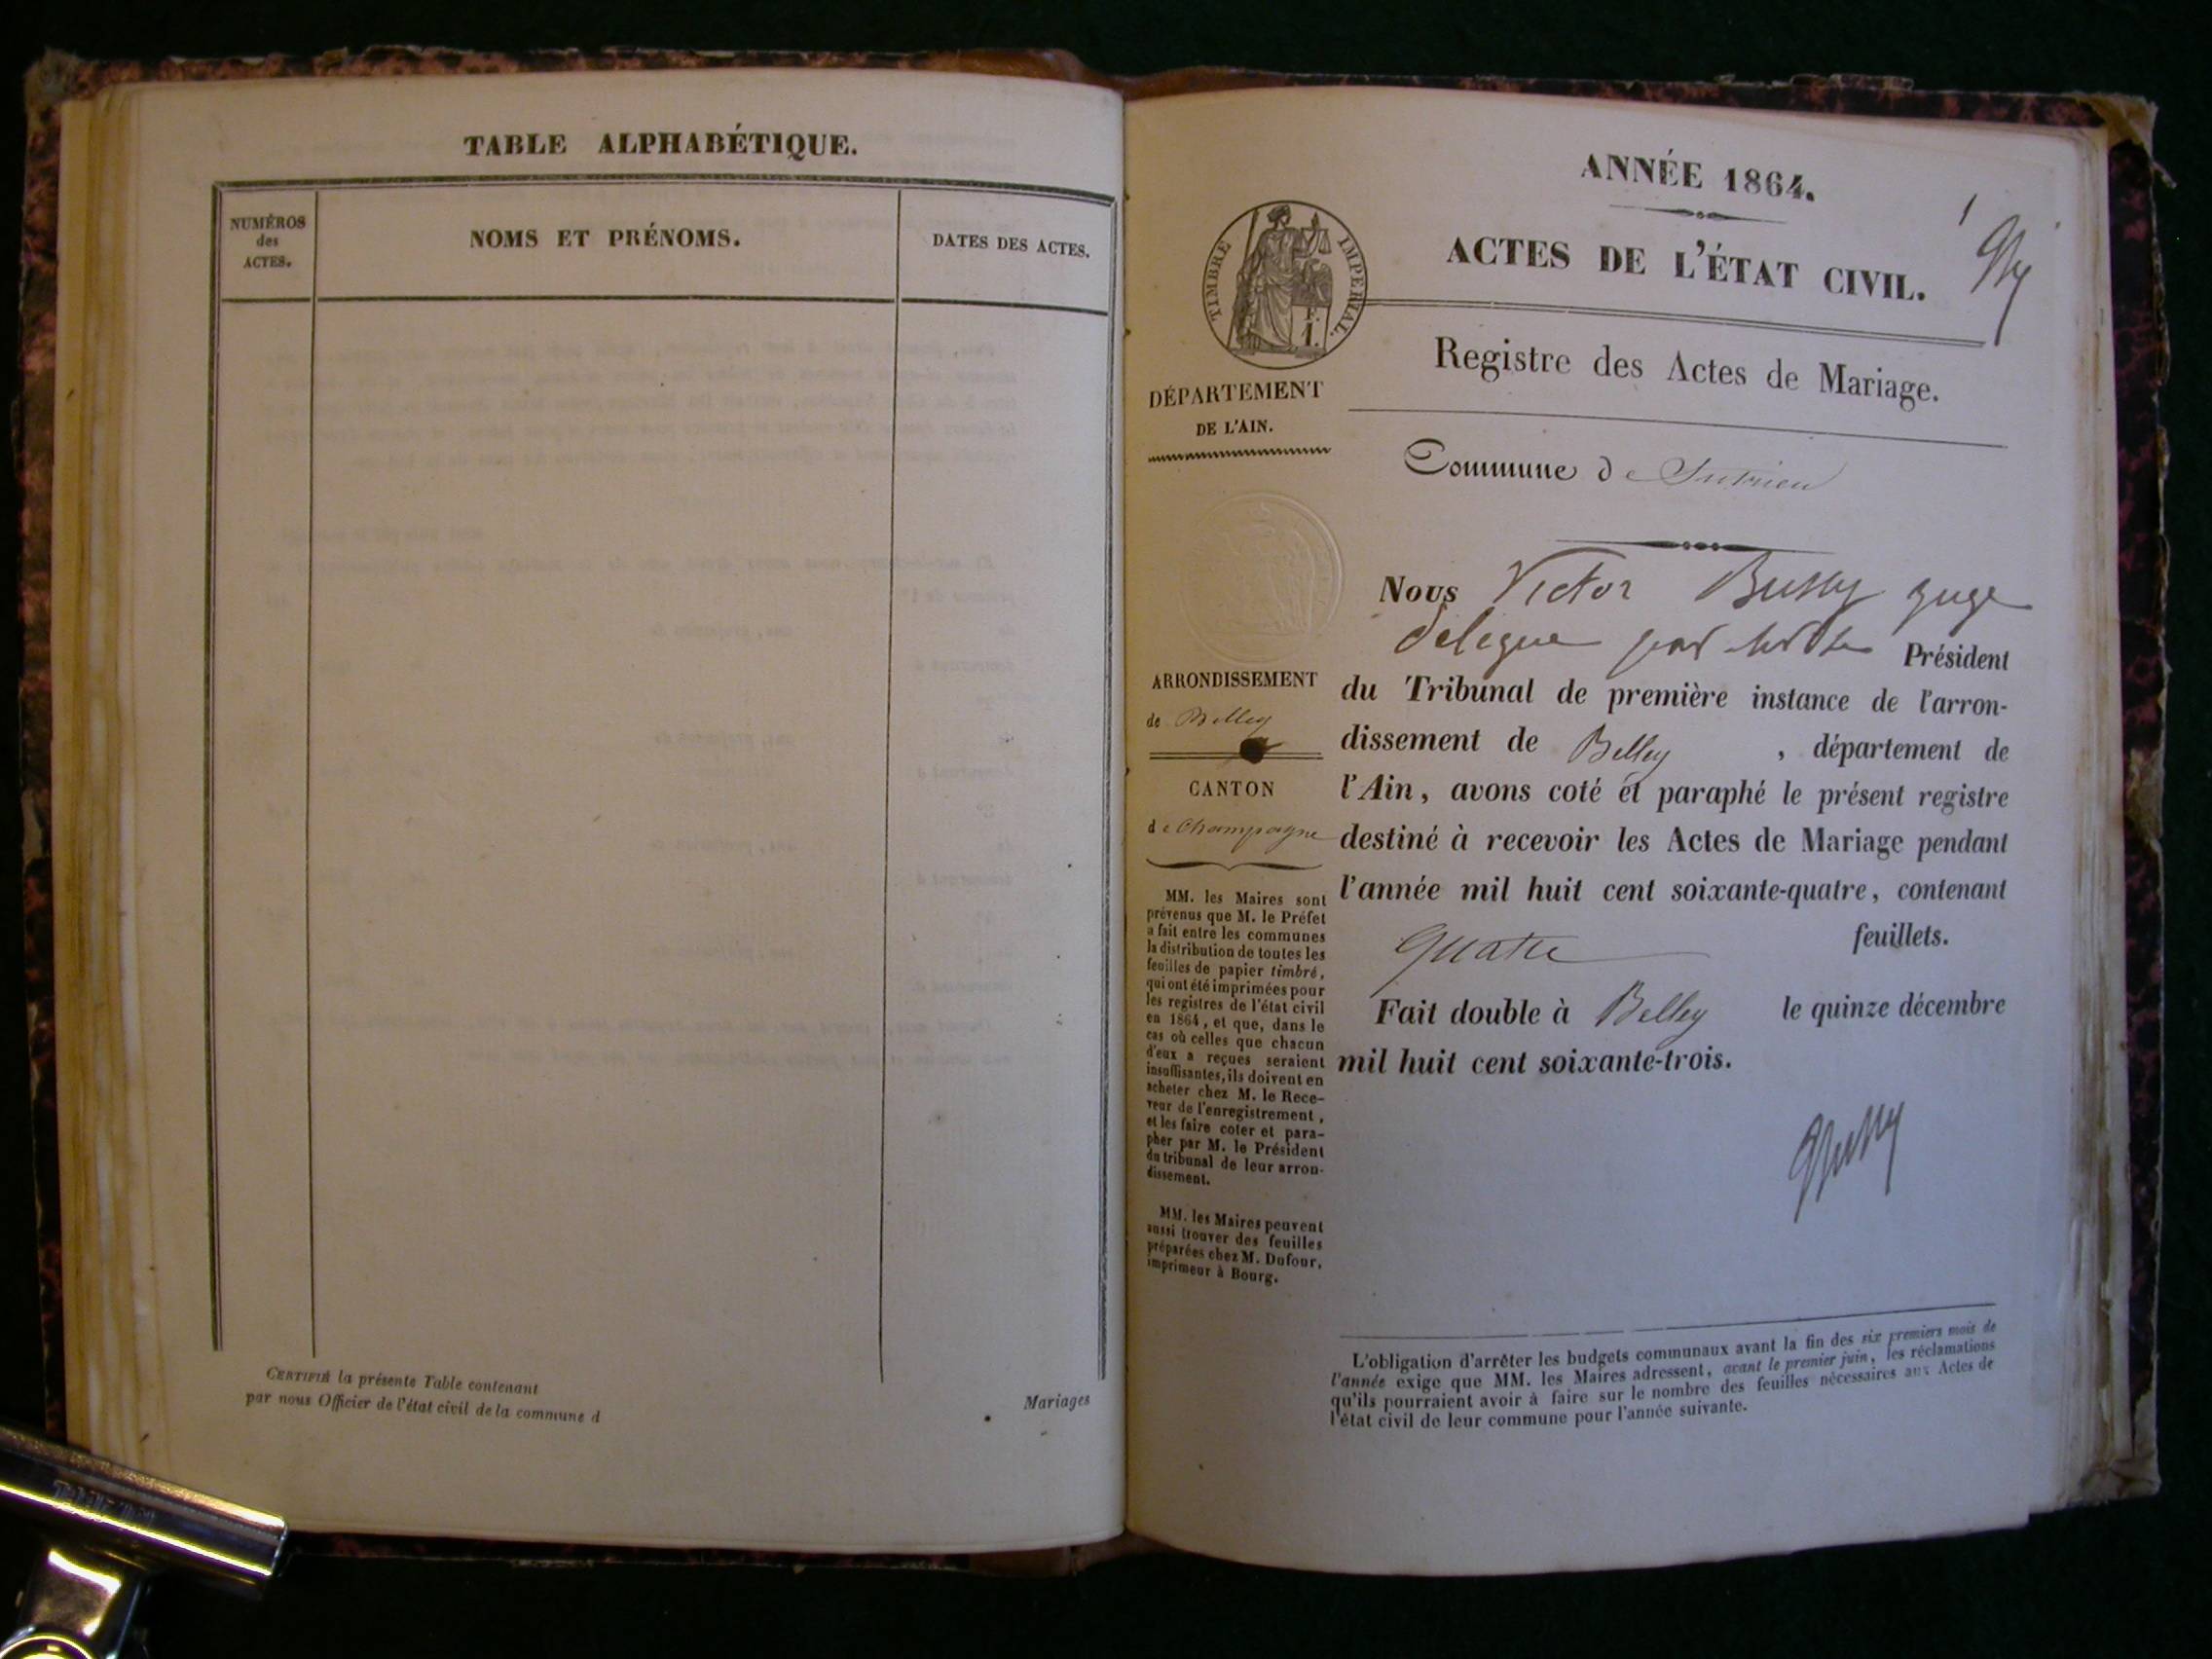 TABLE ALPHABÉTIQUE.
NUMÉROS
des
ACTES.
NOMS ET PRÉNOMS.
DATES DES ACTES.
CERTIFIÉ la présente Table contenant
par nous Officier de l'état civil de la commune d
Mariages
ANNÉE 1864.
1
ACTES DE L'ÉTAT CIVIL.
TIMBRE IMPERIAL.
F.
1.
Registre des Actes de Mariage.
DÉPARTEMENT
DE L'AIN.
Commune de Sutrieu
Nous Victor Bussy juge
délégué par Président
ARRONDISSEMENT
de Belley
CANTON
de Champagne
MM. les Maires sont
prévenus que M. le Préfet
a fait entre les communes
la distribution de toutes les
feuilles de papier timbré,
qui ont été imprimées pour
les registres de l'état civil
en 1864, et que, dans le
cas où celles que chacun
d'eux a reçues seraient
insuffisantes, ils doivent en
acheter chez M. le Rece-
veur de l'enregistrement,
et les faire coter et para-
pher par M. le Président
du tribunal de leur arron-
dissement.
MM. les Maires peuvent
aussi trouver des feuilles
préparées chez M. Dufour,
imprimeur à Bourg.
du Tribunal de première instance de l'arron-
dissement de Belley, département de
l'Ain, avons coté et paraphé le présent registre
destiné à recevoir les Actes de Mariage pendant
l'année mil huit cent soixante-quatre, contenant
quatre feuillets.
Fait double à Belley le quinze décembre
mil huit cent soixante-trois.
Bussy
L'obligation d'arrêter les budgets communaux avant la fin des six premiers mois de
l'année exige que MM. les Maires adressent, avant le premier juin, les réclamations
qu'ils pourraient avoir à faire sur le nombre des feuilles nécessaires aux Actes de
l'état civil de leur commune pour l'année suivante.